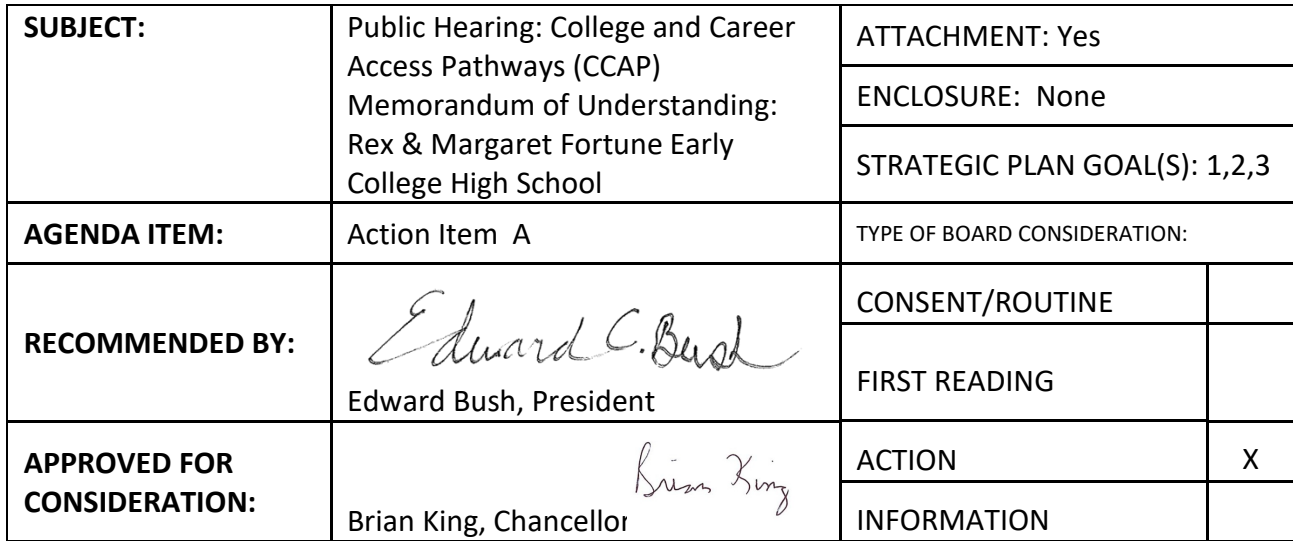 SUBJECT:
Public Hearing: College and Career
Access Pathways (CCAP)
Memorandum of Understanding:
Rex & Margaret Fortune Early
College High School
ATTACHMENT: Yes
ENCLOSURE: None
STRATEGIC PLAN GOAL(S): 1,2,3
AGENDA ITEM:
Action Item A
TYPE OF BOARD CONSIDERATION:
RECOMMENDED BY:
Edward C. Bush
Edward Bush, President
CONSENT/ROUTINE
FIRST READING
APPROVED FOR
CONSIDERATION:
Brian King
Brian King, Chancellor
ACTION X
INFORMATION